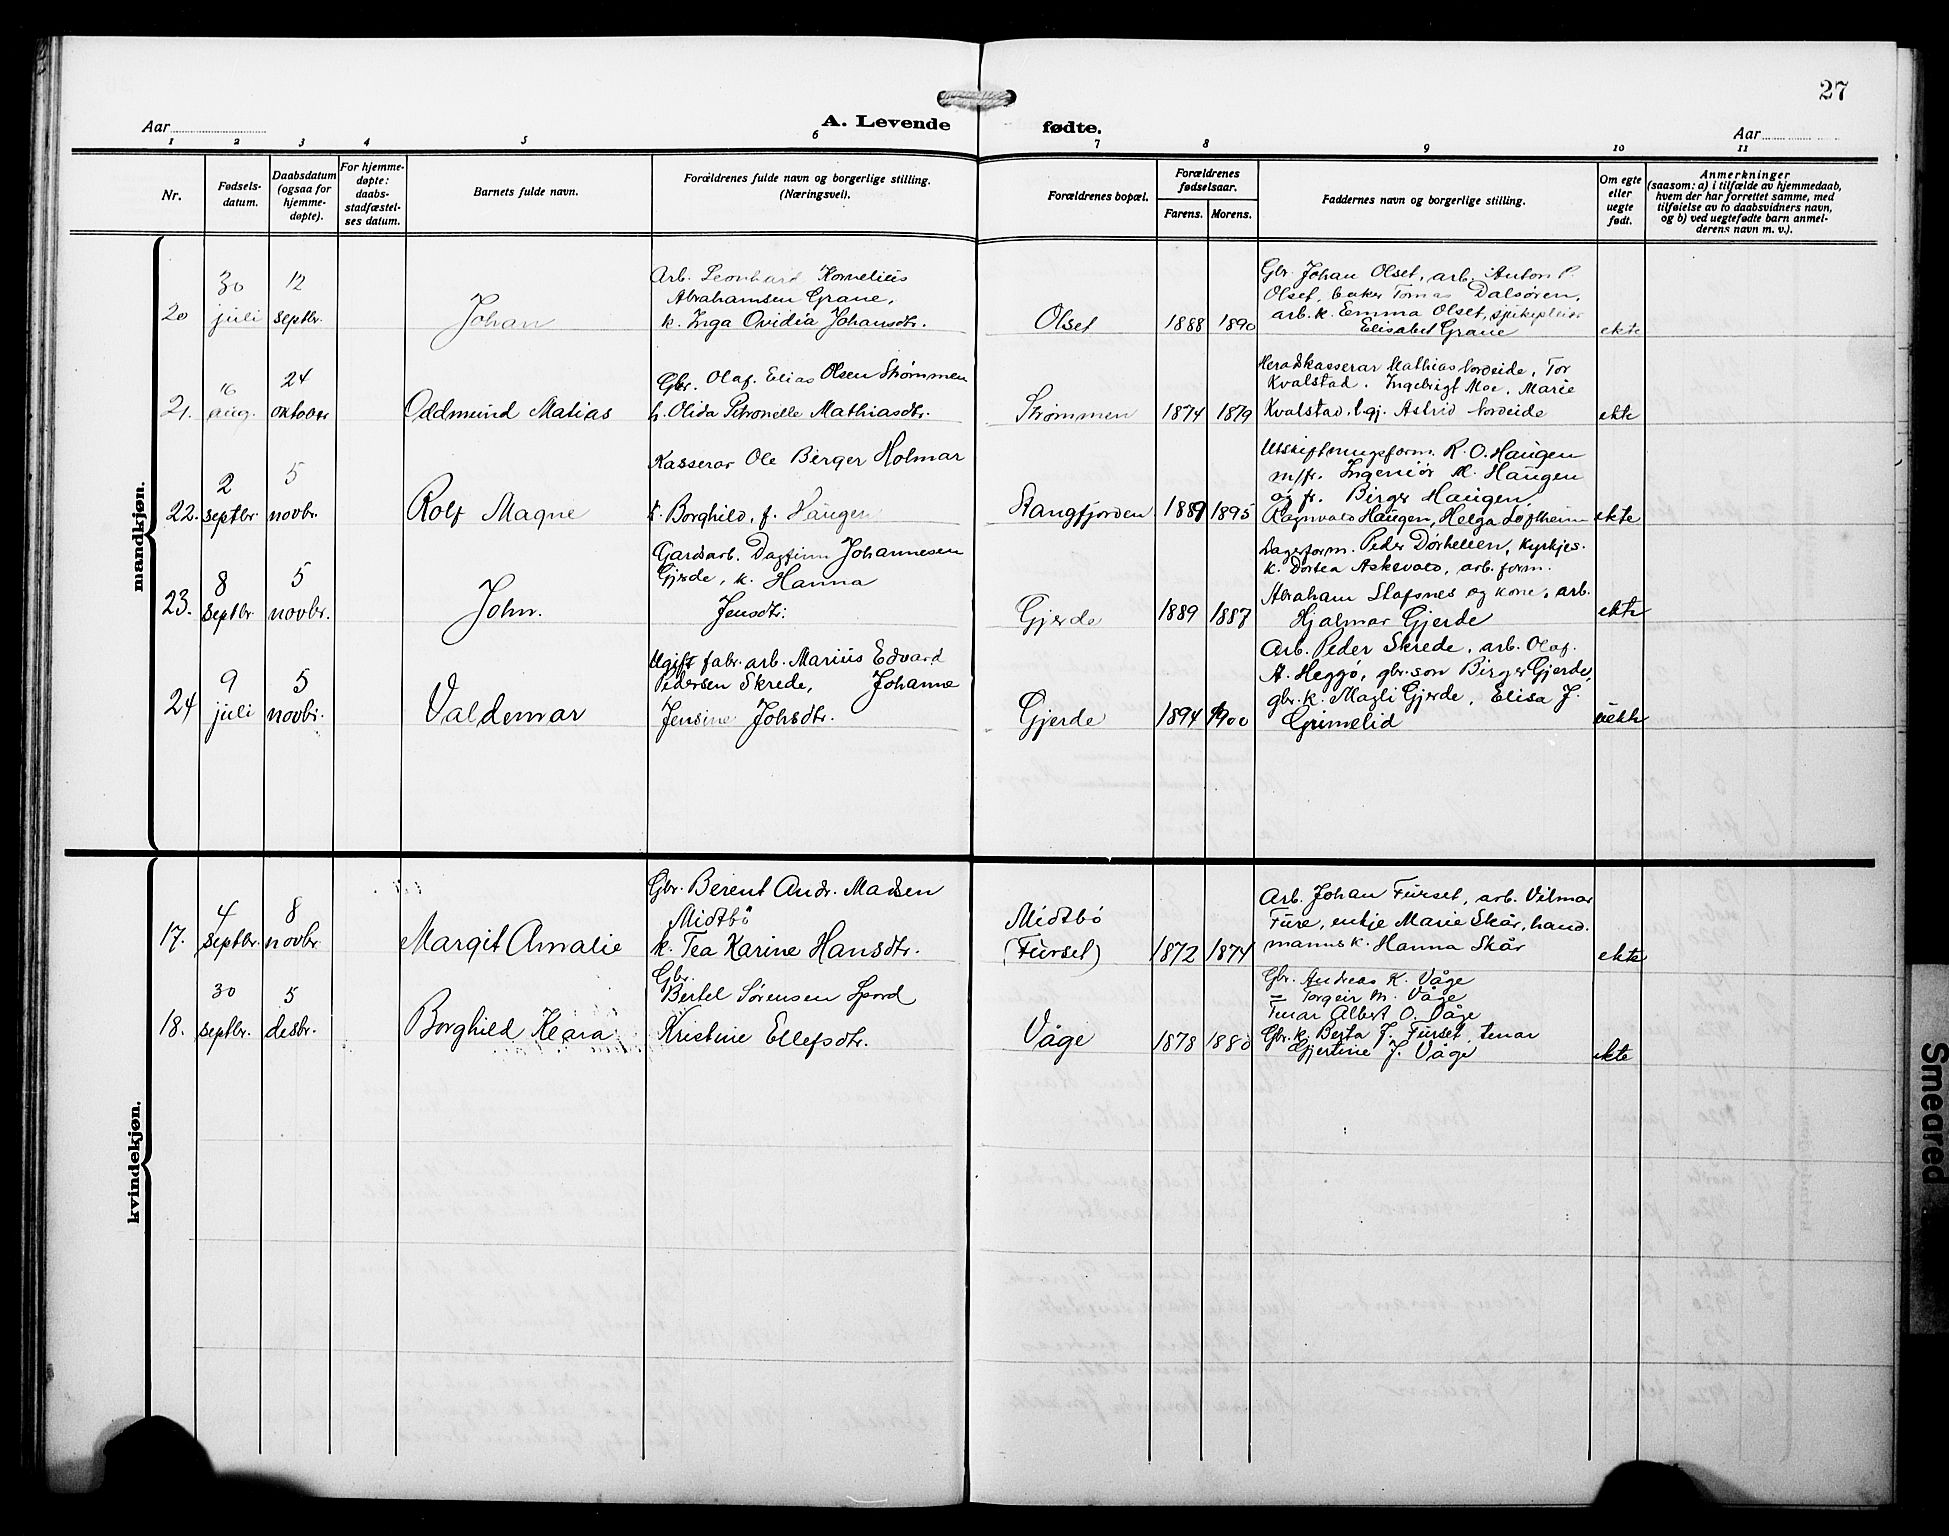 27
Aar
A. Levende fødte.
Aar
1 2 3 4 5 6 7 8 9 10 11
Nr.
Fødsels-
datum.
Daabsdatum
(ogsaa for
hjemme-
døpte).
For hjemme-
døpte:
daabs-
stadfæstel-
ses datum.
Barnets fulde navn.
Forældrenes fulde navn og borgerlige stilling.
(Næringsvei).
Forældrenes bopæl.
Forældrenes
fødselsaar.
Farens. Morens.
Faddernes navn og borgerlige stilling.
Om egte
eller
uegte
født.
Anmerkninger
(saasom: a) i tilfælde av hjemmedaab,
hvem der har forrettet samme, med
tilføielse av to daabsvidners navn,
og b) ved uegtefødte barn anmel-
derens navn m. v.).
mandkjøn.
20
30
juli
12
septbr.
Johan
Arb. Leonhard Kornelius
Abrahamsen Grane,
k. Inga Ovidia Johansdtr.
Olset
1888 1890
Gbr. Johan Olset, arb. Anton P.
Olset, baker Tomas Dalsøren,
arb. k. Emma Olset, sjukepleier
Elisabet Grane
ekte
21.
16
aug.
24
oktober
Oddmund Matias
Gbr. Olaf. Elias Olsen Strømmen
k. Olida Petronille Mathiasdtr.
Strømmen
1874 1879
Heradskasserar Mathias Nordeide, Tor
Kvalstad, Ingebrigt Moe, Marie
Kvalstad, Astrid Nordeide
ekte
22.
2
septbr.
5
novbr.
Rolf Magne
Kasserar Ole Birger Holmar
k. Borghild, f. Haugen
Stangfjorden
1889 1895
Utskiftningsform. R. O. Haugen
m/fr. Ingeniør M. Haugen
og fr. Birger Haugen,
Ragnvald Haugen, Helga Løftheim
ekte
23.
8
septbr.
5
novbr.
John.
Gardsarb. Dagfinn Johannesen
Gjerde, k. Hanna
Jensdtr.
Gjerde
1889 1887
Lagerform. Peder Dørheleen, Kyrkjes.
k. Dortea Askevold, arb. form.
Abraham Stafsnes og kone, arb.
Hjalmar Gjerde
ekte
24
9
juli
5
novbr.
Valdemar
Ugift fabr. arb. Marius Edvard
Pedersen Skrede, Johanne
Jensine Johsdtr.
Gjerde
1894 1900
Arb. Peder Skrede, arb. Olaf.
A. Heggø, gbr.son Birger Gjerde,
gbr. k. Magli Gjerde, Elisa J.
Grimelid
uekte
kvindekjøn.
17.
4
septbr.
8
novbr.
Margit Amalie
Gbr. Berent Andr. Madsen
Midtbö
k. Tea Karine Hansdtr.
Midtbö
(Furset)
1872 1874
Arb. Johan Furset, arb. Vilmar
Fure, enkje Marie Skår, hand.
mannsk. Hanna Skår
ekte
18.
30
septbr.
5
desbr.
Borghild Klara
Gbr.
Bertel Sørensen Spord
Kristine Ellefsdtr.
Våge
1878 1880
Gbr. Andreas K. Våge
= Torgeir M. Våge
Tenar Albert O. Våge
Gbr. k. Berta J. Furset, tenar
Gjertine J. Våge
ekte
Smeared